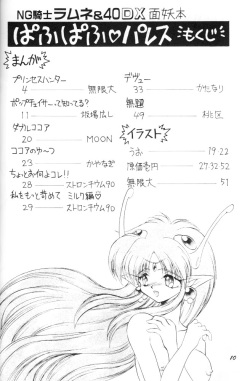 NG騎士ラムネ&40DX 面妖本
ぱふぱふ♡パレス もくじ
まんが
プリンセスハンター
4 無限大
ポップチェイサーって知ってる?
11 坂場出し
ダ力しココア
20 MOON
ココアのゆ〜つ
23 かやなぎ
ちょっとお何よコレ!!
28 ストロンチウム90
私をもっと苛めて ミルク編
29 ストロンチウム90
デヴュー
33 かたなり
無題
49 桃区
イラスト
うお 19.22
原価壱円 27.32.52
無限大 51
10